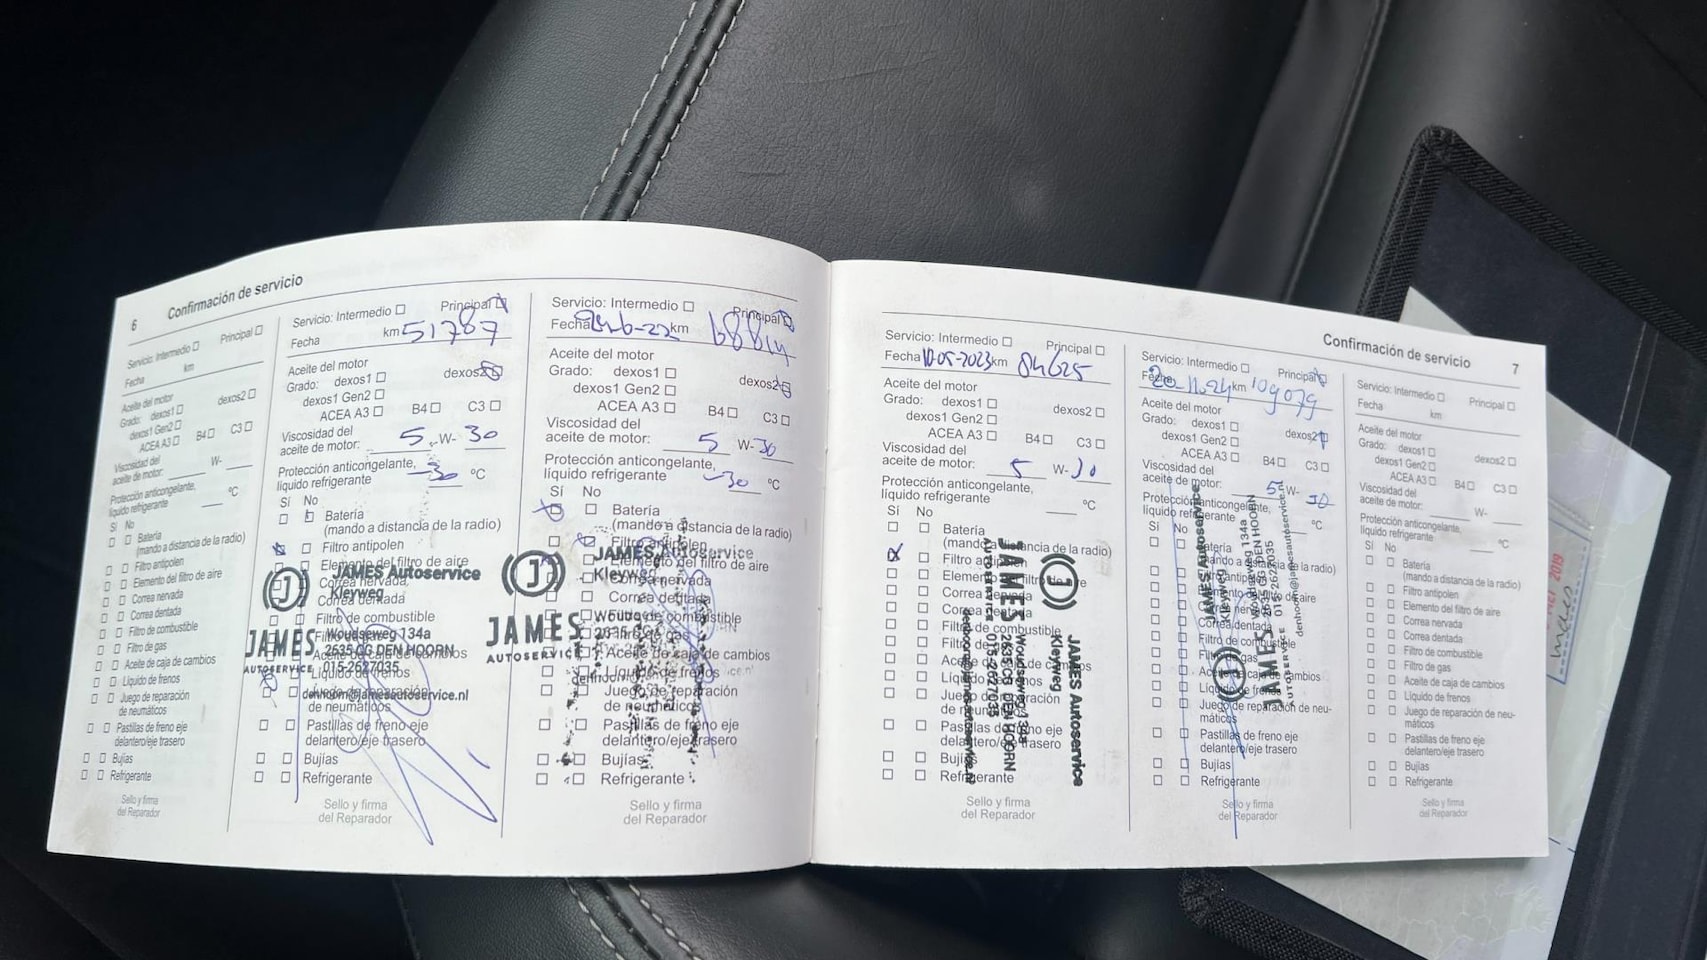 6 Confirmación de servicio
Servicio: Intermedio Principal
Fecha km
Aceite del motor
Grado: dexos1 dexos2
dexos1 Gen2
ACEA A3 B4 C3
Viscosidad del
aceite de motor: W-
Protección anticongelante,
líquido refrigerante °C
Sí No
Batería
(mando a distancia de la radio)
Filtro antipolen
Elemento del filtro de aire
Correa nervada
Correa dentada
Filtro de combustible
Filtro de gas
Aceite de caja de cambios
Líquido de frenos
Juego de reparación
de neumáticos
Pastillas de freno eje
delantero/eje trasero
Bujías
Refrigerante
Sello y firma
del Reparador
Servicio: Intermedio Principal
Fecha km 51787
Aceite del motor
Grado: dexos1 dexos2
dexos1 Gen2
ACEA A3 B4 C3
Viscosidad del
aceite de motor: 5 W- 30
Protección anticongelante,
líquido refrigerante -30 °C
Sí No
Batería
(mando a distancia de la radio)
Filtro antipolen
Elemento del filtro de aire
Correa nervada
Correa dentada
Filtro de combustible
JAMES Autoservice
Kleyweg
Woudseweg 134a
2635 CG DEN HOORN
015-2627035
denhoorn@jamesautoservice.nl
JAMES
AUTOSERVICE
Líquido de frenos
Juego de reparación
de neumáticos
Pastillas de freno eje
delantero/eje trasero
Bujías
Refrigerante
Sello y firma
del Reparador
Servicio: Intermedio Principal
Fecha km
Aceite del motor
Grado: dexos1 dexos2
dexos1 Gen2
ACEA A3 B4 C3
Viscosidad del
aceite de motor: 5 W-30
Protección anticongelante,
líquido refrigerante -30 °C
Sí No
Batería
(mando a distancia de la radio)
Filtro antipolen
Elemento del filtro de aire
Correa nervada
Correa dentada
Filtro de combustible
Filtro de gas
Aceite de caja de cambios
Líquido de frenos
JAMES Autoservice
Kleyweg
JAMES
AUTOSERVICE
Juego de reparación
de neumáticos
Pastillas de freno eje
delantero/eje trasero
Bujías
Refrigerante
Sello y firma
del Reparador
Confirmación de servicio 7
Servicio: Intermedio Principal
Fecha 10-05-2023 km 84625
Aceite del motor
Grado: dexos1 dexos2
dexos1 Gen2
ACEA A3 B4 C3
Viscosidad del
aceite de motor: 5 W-30
Protección anticongelante,
líquido refrigerante °C
Sí No
Batería
(mando a distancia de la radio)
Filtro antipolen
Elemento del filtro de aire
Correa nervada
Correa dentada
Filtro de combustible
Filtro de gas
Aceite de caja de cambios
Líquido de frenos
Juego de reparación
de neumáticos
Pastillas de freno eje
delantero/eje trasero
Bujías
Refrigerante
JAMES Autoservice
Kleyweg
Woudseweg 134a
2635 CG DEN HOORN
015-2627035
JAMES
AUTOSERVICE
Sello y firma
del Reparador
Servicio: Intermedio Principal
Fecha 20-11-24 km 109079
Aceite del motor
Grado: dexos1 dexos2
dexos1 Gen2
ACEA A3 B4 C3
Viscosidad del
aceite de motor: 5 W- 30
Protección anticongelante,
líquido refrigerante °C
Sí No
Batería
Correa dentada
Filtro de combustible
Filtro de gas
Aceite de caja de cambios
Líquido de frenos
Juego de reparación de neu-
máticos
Pastillas de freno eje
delantero/eje trasero
Bujías
Refrigerante
JAMES Autoservice
Kleyweg
Woudseweg 134a
2635 CG DEN HOORN
015-2627035
denhoorn@jamesautoservice.
JAMES
AUTOSERVICE
Sello y firma
del Reparador
Servicio: Intermedio Principal
Fecha km
Aceite del motor
Grado: dexos1 dexos2
dexos1 Gen2
ACEA A3 B4 C3
Viscosidad del
aceite de motor: W-
Protección anticongelante,
líquido refrigerante °C
Sí No
Batería
(mando a distancia de la radio)
Filtro antipolen
Elemento del filtro de aire
Correa nervada
Correa dentada
Filtro de combustible
Filtro de gas
Aceite de caja de cambios
Líquido de frenos
Juego de reparación de neu-
máticos
Pastillas de freno eje
delantero/eje trasero
Bujías
Refrigerante
Sello y firma
del Reparador
MEI 2019